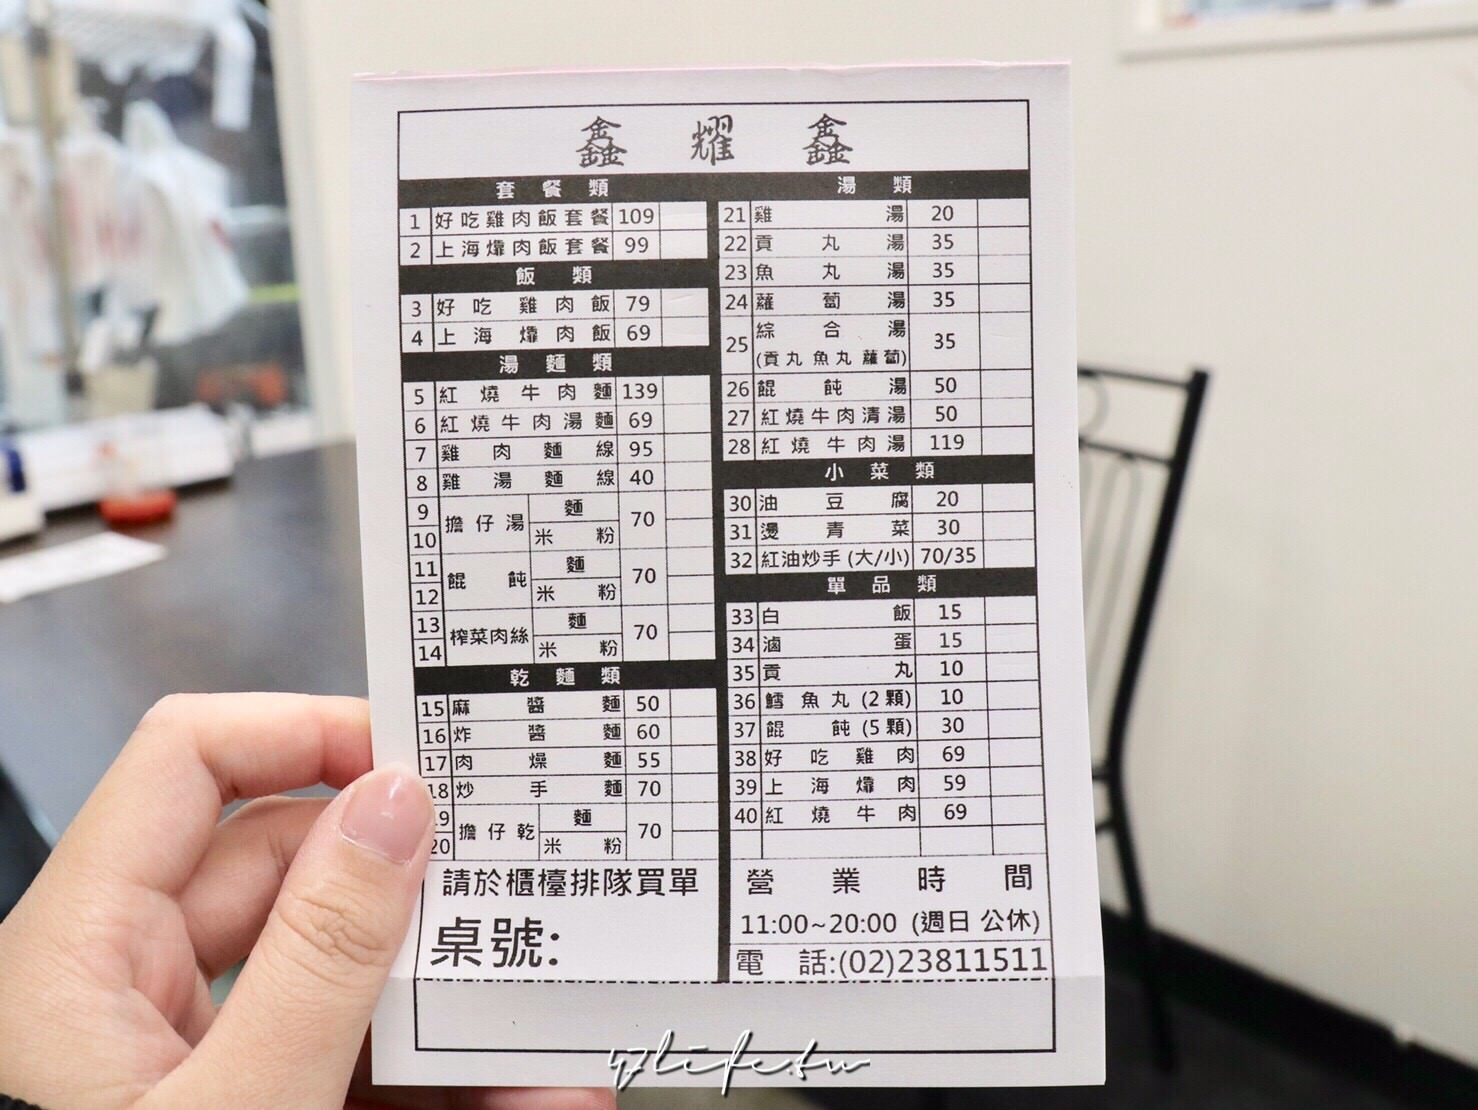 鑫耀鑫
套餐類
1 好吃雞肉飯套餐 109
2 上海爌肉飯套餐 99
飯類
3 好吃雞肉飯 79
4 上海爌肉飯 69
湯麵類
5 紅燒牛肉麵 139
6 紅燒牛肉湯麵 69
7 雞肉麵線 95
8 雞湯麵線 40
9 擔仔湯 麵 70
10 米粉
11 餛飩 麵 70
12 米粉
13 榨菜肉絲 麵 70
14 米粉
乾麵類
15 麻醬麵 50
16 炸醬麵 60
17 肉燥麵 55
18 炒手麵 70
19 擔仔乾 麵 70
20 米粉
請於櫃檯排隊買單
桌號:
湯類
21 雞湯 20
22 貢丸湯 35
23 魚丸湯 35
24 蘿蔔湯 35
25 綜合湯 35
(貢丸魚丸蘿蔔)
26 餛飩湯 50
27 紅燒牛肉清湯 50
28 紅燒牛肉湯 119
小菜類
30 油豆腐 20
31 燙青菜 30
32 紅油炒手(大/小) 70/35
單品類
33 白飯 15
34 滷蛋 15
35 貢丸 10
36 鱈魚丸(2顆) 10
37 餛飩(5顆) 30
38 好吃雞肉 69
39 上海爌肉 59
40 紅燒牛肉 69
營業時間
11:00~20:00 (週日公休)
電話:(02)23811511
47life.tw